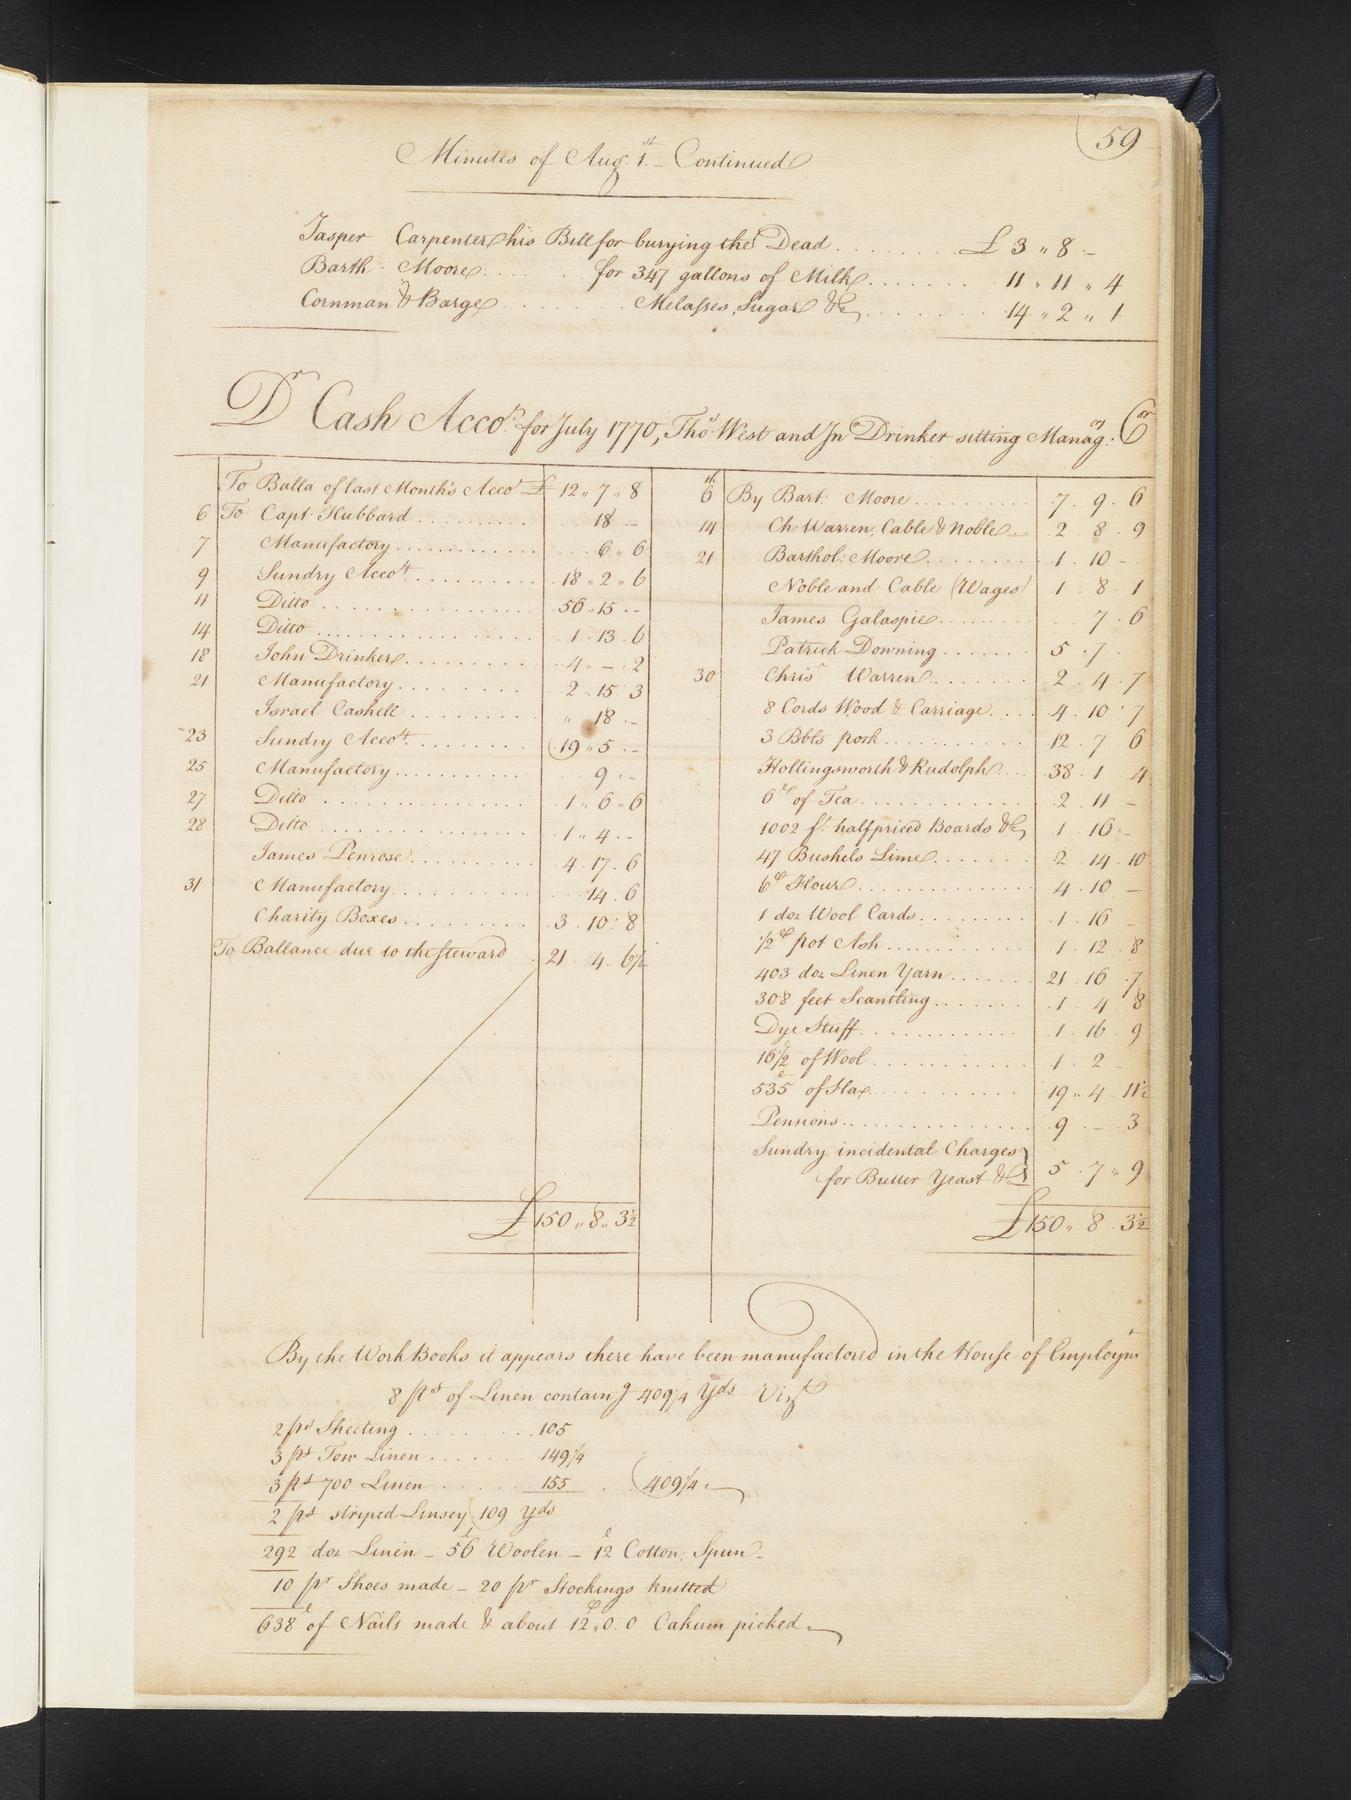 59
Minutes of Aug: 1st. – Continued
Jasper Carpenter his Bill for burying the Dead . . . . . . . £ 3 „ 8 –
Barth. Moore . . . . . for 347 gallons of Milk . . . . . . 11 „ 11 „ 4
Cornman & Barge . . . . . . Melasses, Sugar &c . . . . . . 14 „ 2 „ 1
Dr Cash Accots for July 1770, Thos West and Jno Drinker sitting Managrs: Cr
To Balla of last Month's Accot £ 12 „ 7 „ 8
6 To Capt. Hubbard . . . . . . 18 –
7 Manufactory . . . . . . 6 „ 6
9 Sundry Accots . . . . . . 18 „ 2 „ 6
11 Ditto . . . . . . 56 „ 15 –
14 Ditto . . . . . . 1 . 13 . 6
18 John Drinker . . . . . . 4 „ – „ 2
21 Manufactory . . . . . . 2 „ 15 3
Israel Cashell . . . . . . „ 18 –
23 Sundry Accots . . . . . . 19 „ 5 –
25 Manufactory . . . . . . 9 –
27 Ditto . . . . . . 1 „ 6 „ 6
28 Ditto . . . . . . 1 „ 4 –
James Penrose . . . . . . 4 . 17 . 6
31 Manufactory . . . . . . 14 . 6
Charity Boxes . . . . . . 3 . 10 : 8
To Ballance due to the Steward . 21 . 4 . 6½
£ 150 „ 8 „ 3½
6th By Bart: Moore . . . . . . 7 . 9 . 6
14 Ch: Warren, Cable & Noble – . 2 . 8 . 9
21 Barthol: Moore . . . . . . 1 . 10 –
Noble and Cable (Wages) 1 . 8 . 1
James Galaspie . . . . . . 7 . 6
Patrick Downing . . . . . . 5 . 7 .
30 Chrisr Warren . . . . . . 2 . 4 . 7
8 Cords Wood & Carriage . . . . 4 . 10 : 7
3 Bbls pork . . . . . . 12 . 7 6
Hollingsworth & Rudolph . . . 38 . 1 4
6lb of Tea . . . . . . 2 . 11 –
1002 ft. half priced Boards &c 1 . 16 –
47 Bushels Lime . . . . . . 2 . 14 . 10
6C Flour . . . . . . 4 . 10 –
1 doz Wool Cards . . . . . . 1 . 16 –
½C pot Ash . . . . . . 1 . 12 . 8
403 doz Linen Yarn . . . . . . 21 . 16 . 7
308 feet Scantling . . . . . . 1 . 4 8
Dye Stuff . . . . . . 1 . 16 . 9
16½ of Wool . . . . . . 1 . 2 –
535 of Flax . . . . . . 19 „ 4 . 11½
Pensions . . . . . . 9 . – . 3
Sundry incidental Charges }
for Butter Yeast &c } 5 . 7 „ 9
£ 150 „ 8 . 3½
By the Work Books it appears there have been manufactored in the House of Employmt
8 ps of Linen containg 409¼ Yds Vizt
2 ps Sheeting . . . . . . 105
3 ps Tow Linen . . . . . . 149¼
3 ps 700 Linen . . . . . . 155 . (409¼ .
2 ps striped Linsey 109 Yds
292 doz Linen – 56 Woolen – 12 Cotton, Spun –
10 pr Shoes made – 20 pr Stockings knitted
638 of Nails made & about 12 „ 0 : 0 Oakum picked .